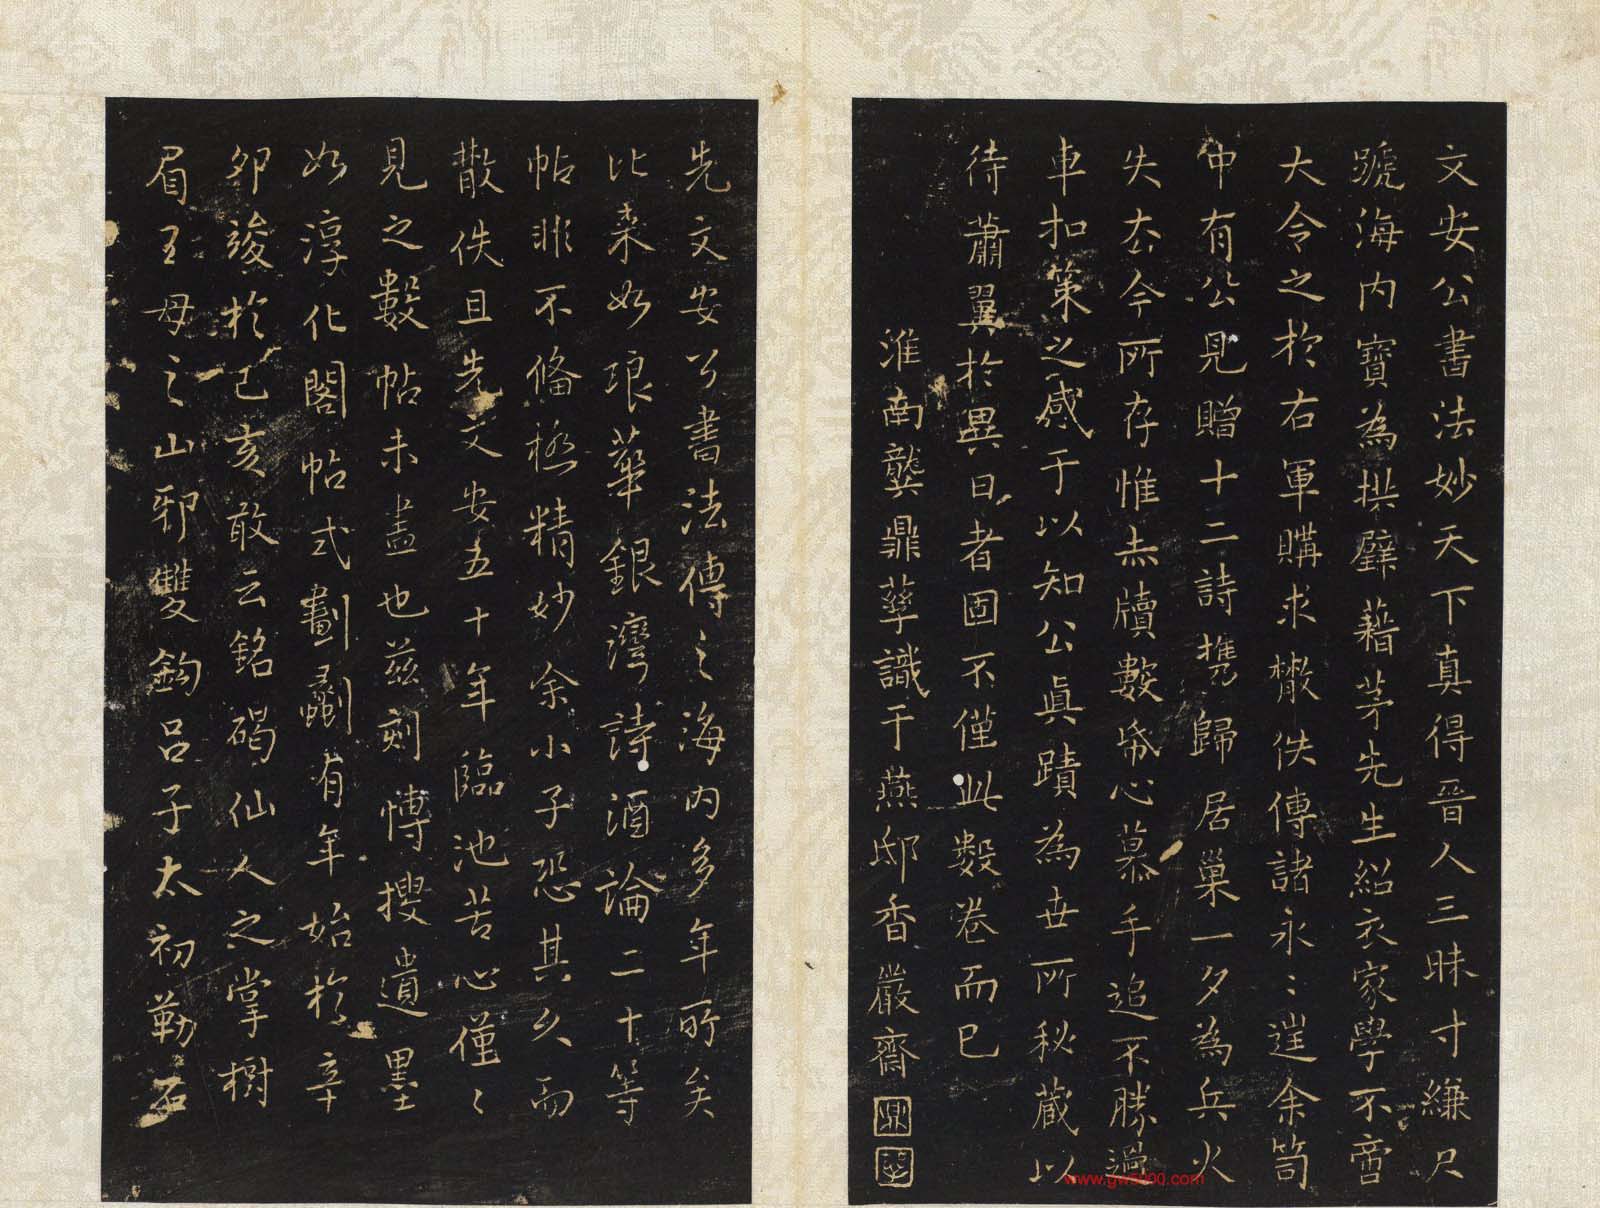 文安公書法妙天下真得晉人三昧寸縑尺
蹏海内寶為拱璧藉茅先生紹衣家學不啻
大令之於右軍購求散佚傳諸永〻逞余笥
中有公見贈十二詩攜歸居巢一夕為兵火
失去今所存惟赤牘數帋心慕手追不勝過
車扣策之感于以知公真蹟為世所秘藏以
待蕭翼於異日者固不僅此數卷而已
淮南龔鼎孳識于燕邸香嚴齋
先文安公書法傳之海内多年所矣
比来如琅華館銀灣詩酒論二十等
帖非不備極精妙余小子恐其久而
散佚且先文安五十年臨池苦心僅〻
見之數帖未盡也茲刻慱搜遺墨
如淳化閣帖式劃劚有年始於辛
卯竣於己亥敢云銘碣仙人之掌樹
眉王母之山邪雙鉤呂子太初勒石
www.gw5000.com